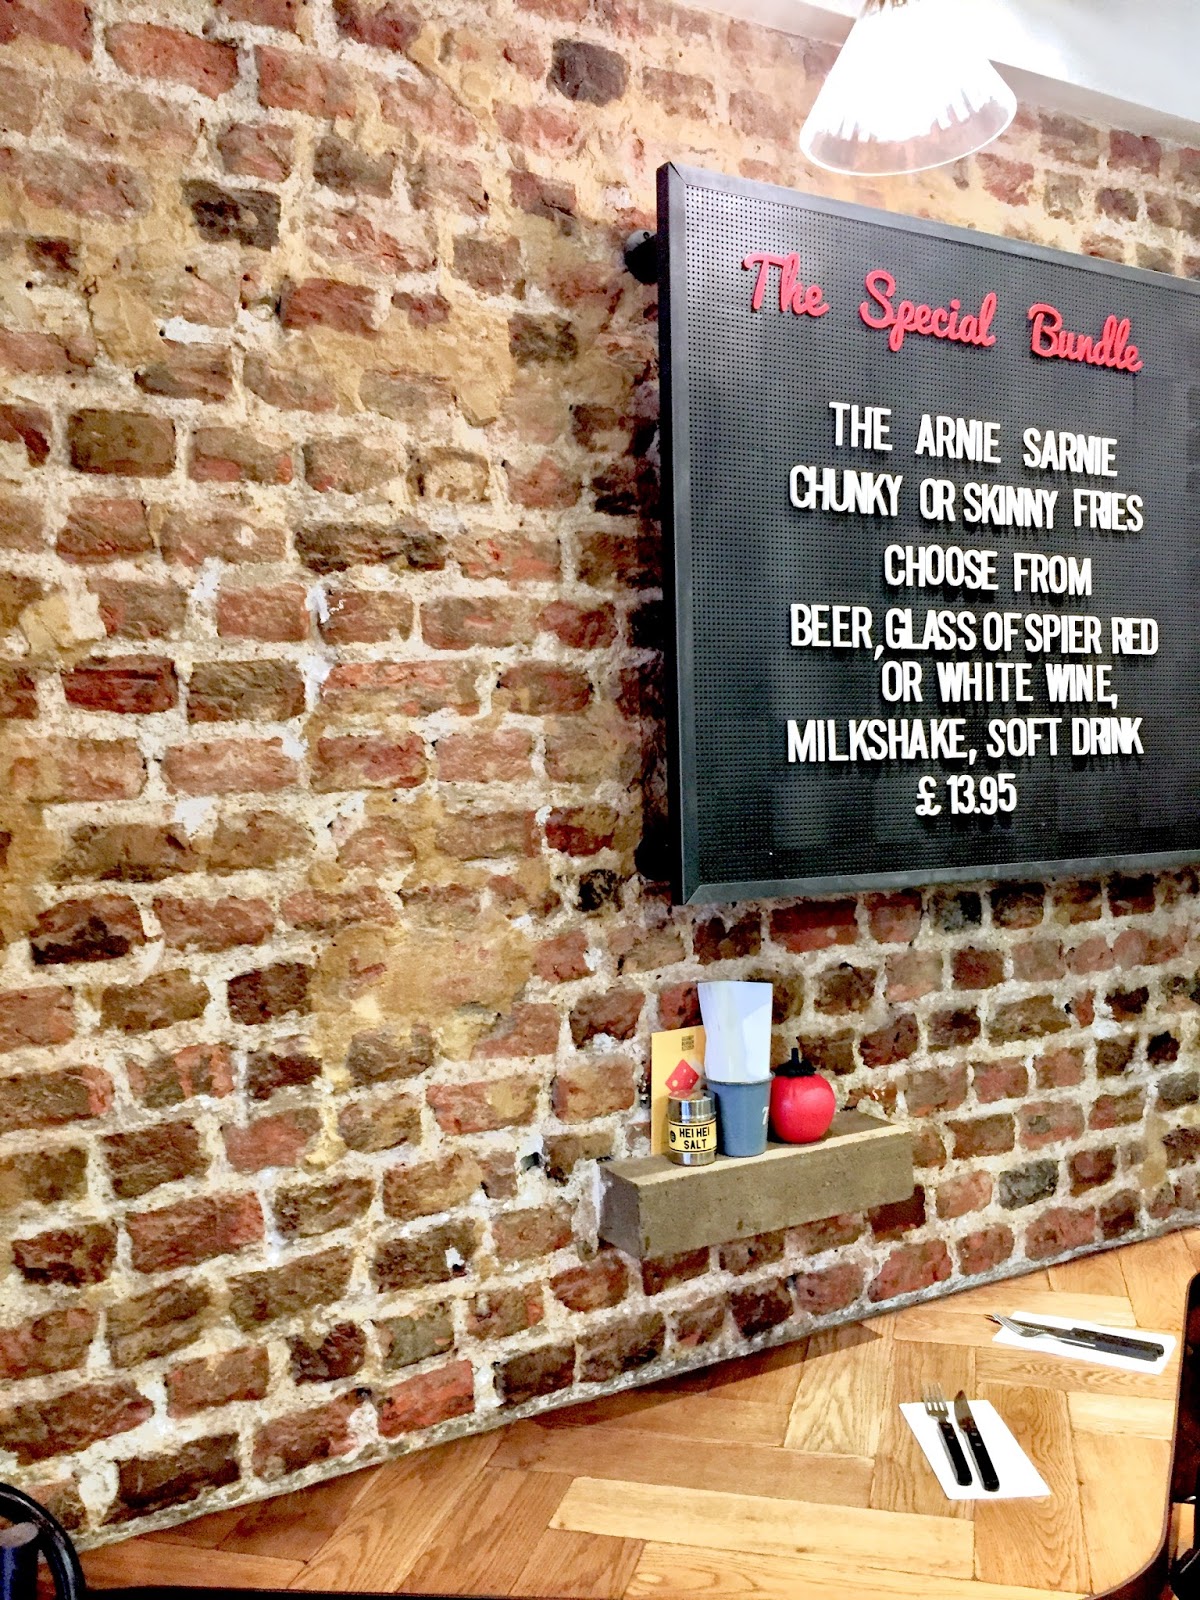 The Special Bundle
THE ARNIE SARNIE
CHUNKY OR SKINNY FRIES
CHOOSE FROM
BEER, GLASS OF SPIER RED
OR WHITE WINE,
MILKSHAKE, SOFT DRINK
£13.95
HEI HEI
SALT